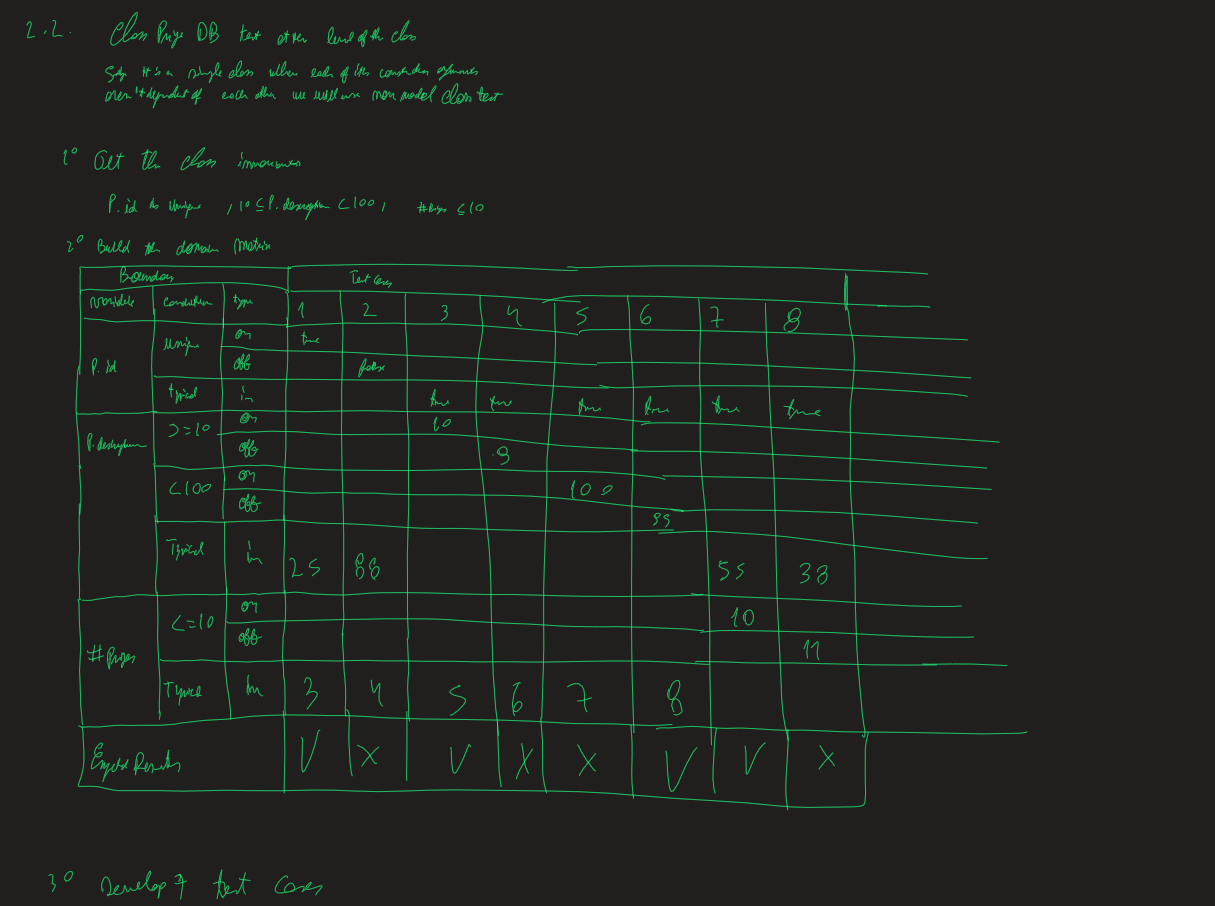 2.2. Class Prize DB test at the level of the class
it is a single class where each of its arguments
aren't dependent of each other we will use non modal Class test
1º Get the class
P.id is Unique , 10 ≤ P.description < 100 , # Prizes ≤ 10
2º Build the domain Matrix
Boundary Test Cases
Variable Condition type 1 2 3 4 5 6 7 8
P.id unique on true
off false
typical in true true true true true true
P.description >=10 on 10
off 9
<100 on 100
off 99
Typical in 25 86 55 38
# Prizes <=10 on 10
off 11
Typical in 3 4 5 6 7 8
Expected Results V X V X X V V X
3º Develop 7 test cases